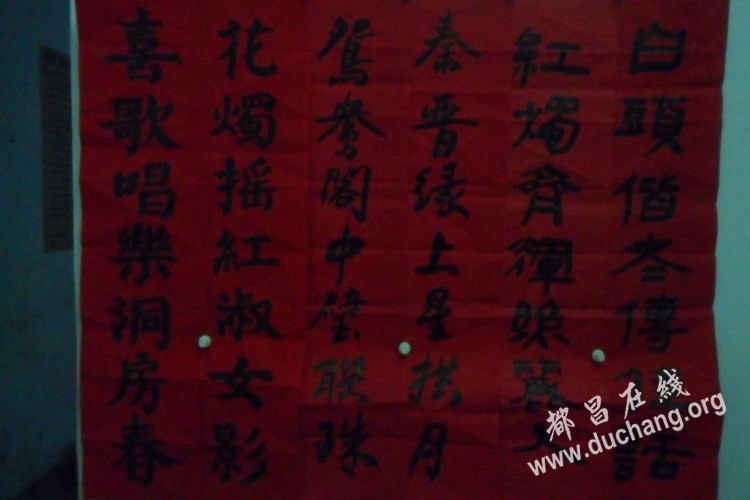 白頭偕老傳話
紅燭齊輝照麗人
秦晉缘上星拱月
鴛鴦閣中璧聯珠
花燭摇紅淑女影
喜歌唱樂洞房春
都昌在线
www.duchang.org